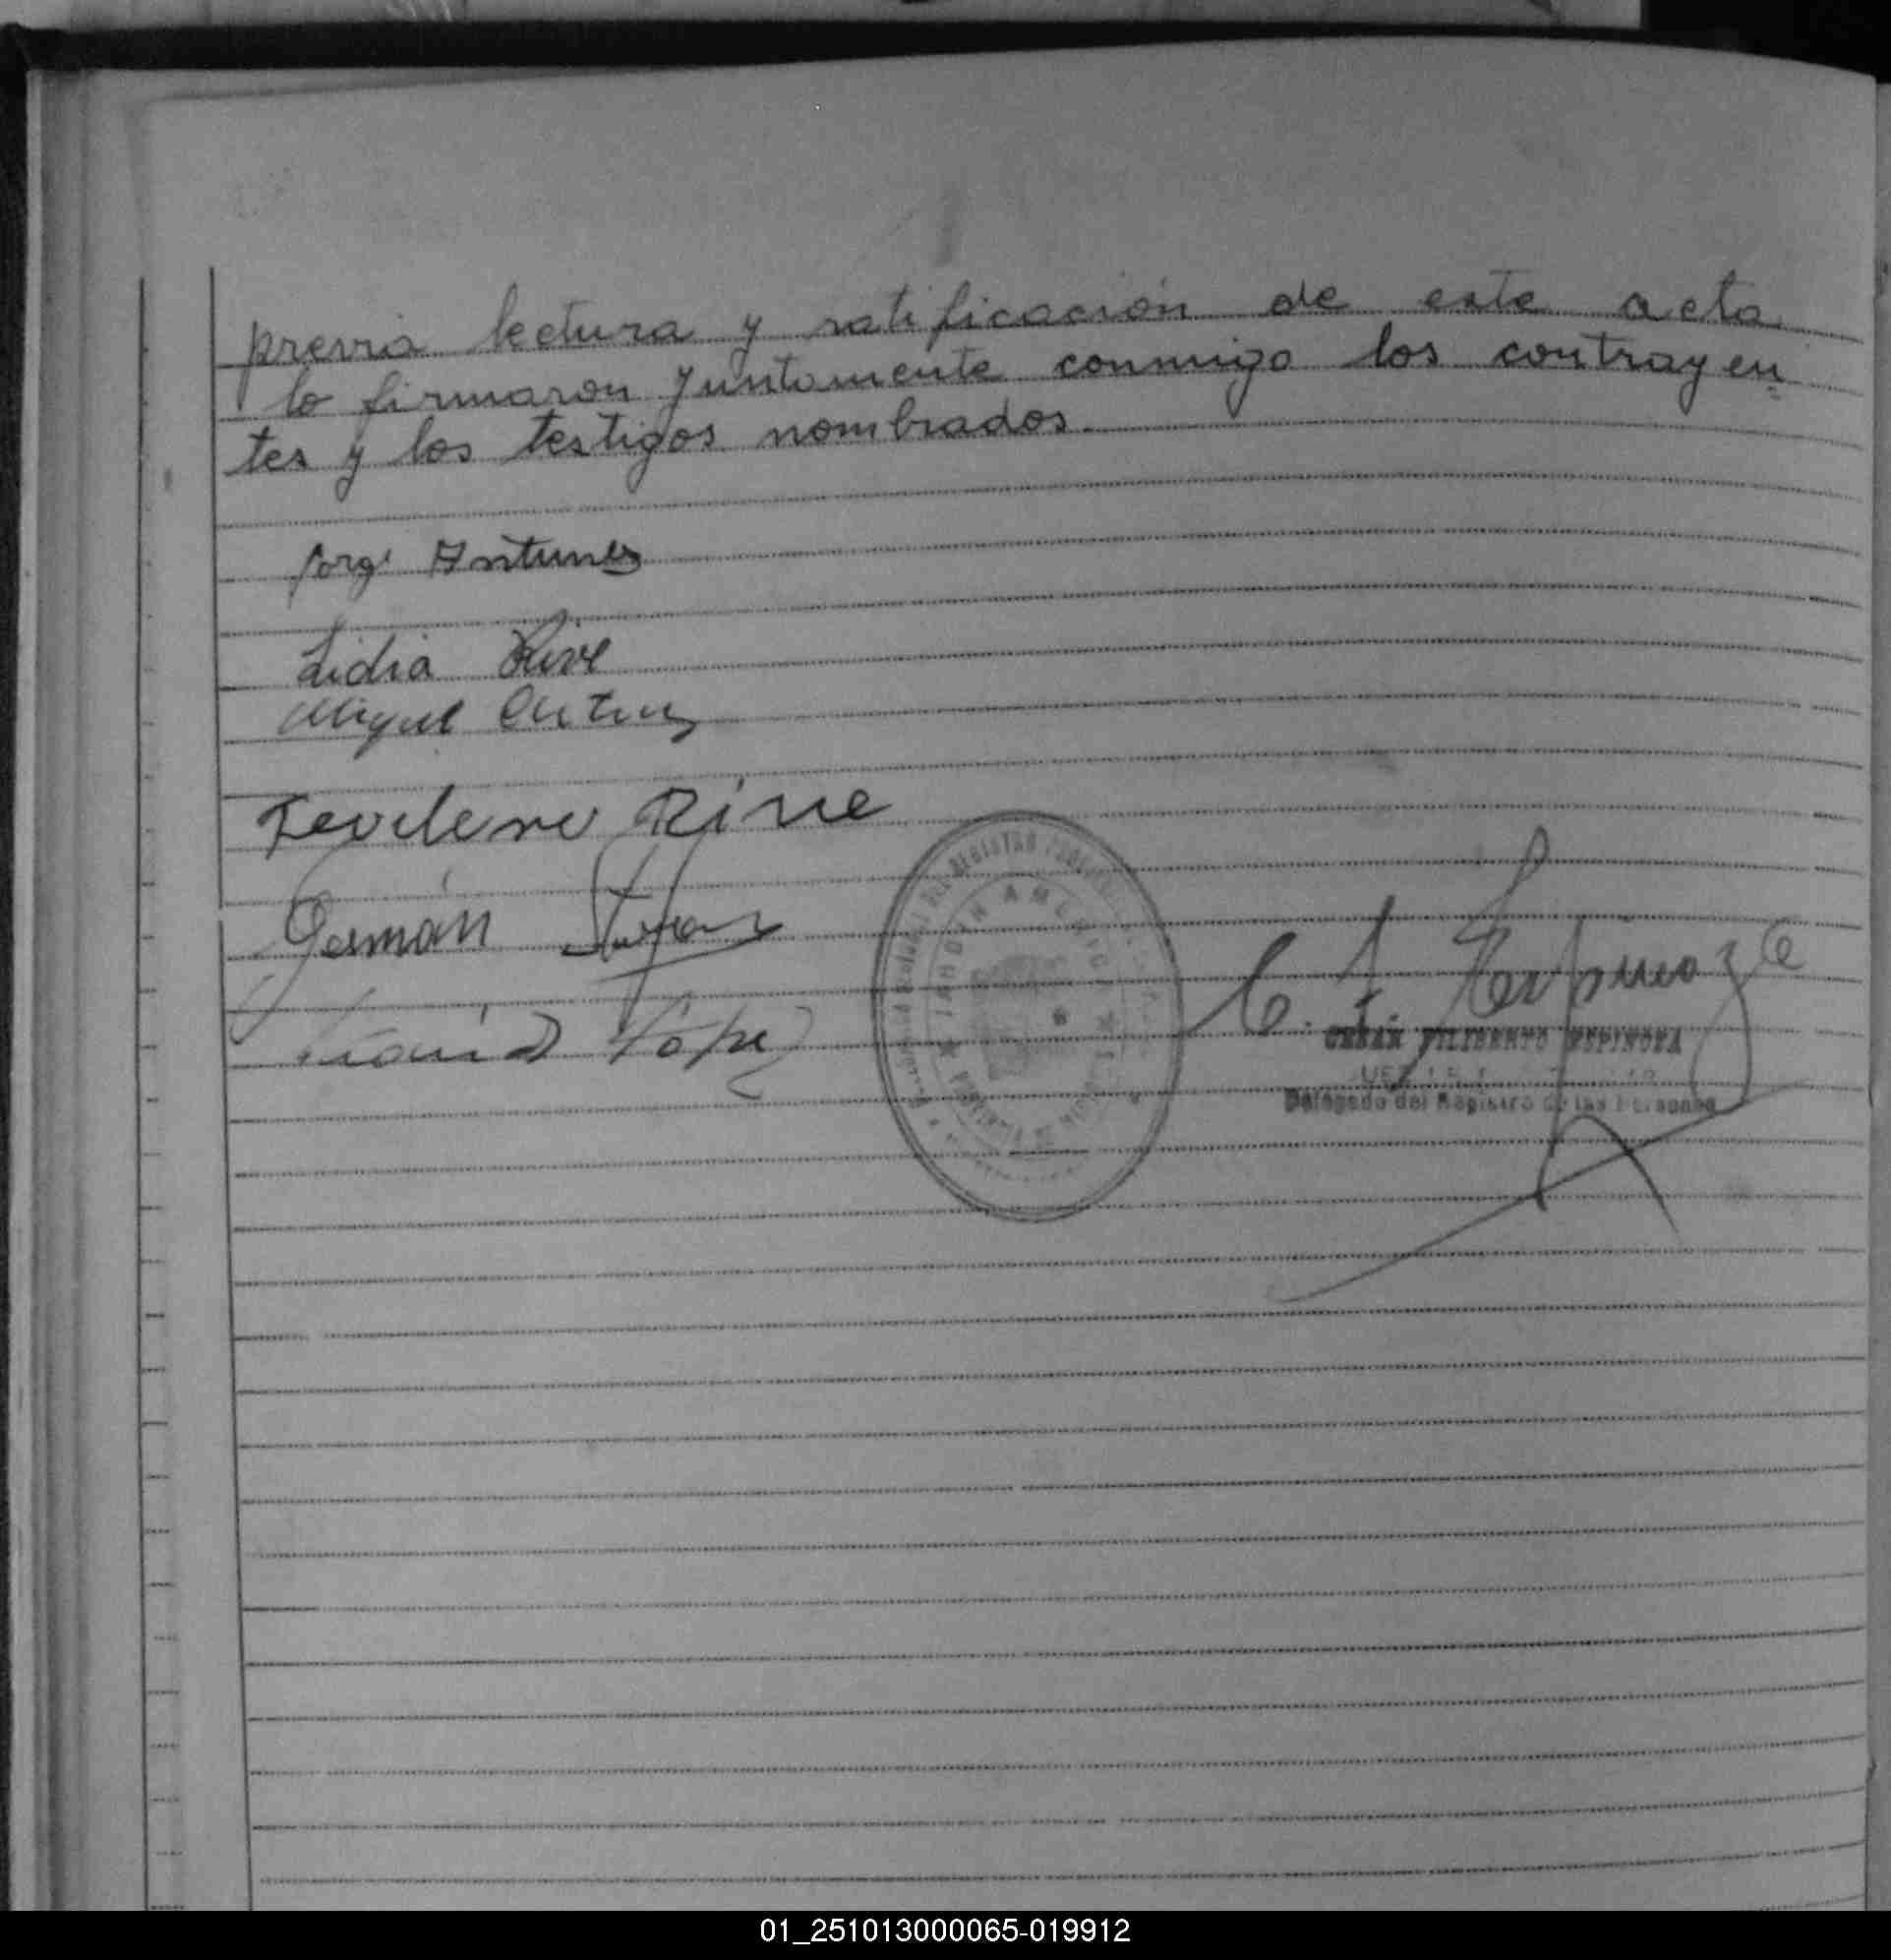 previa lectura y ratificación de este acta
lo firmaron juntamente conmigo los contrayen
tes y los testigos nombrados
Jorge Antunez
Lidia Rive
Miguel
Rive
Germán
López
C. F. Espinoza
JARDIN AMERICA
CESAR FILIBERTO ESPINOZA
Delegado del Registro de las Personas
01_251013000065-019912